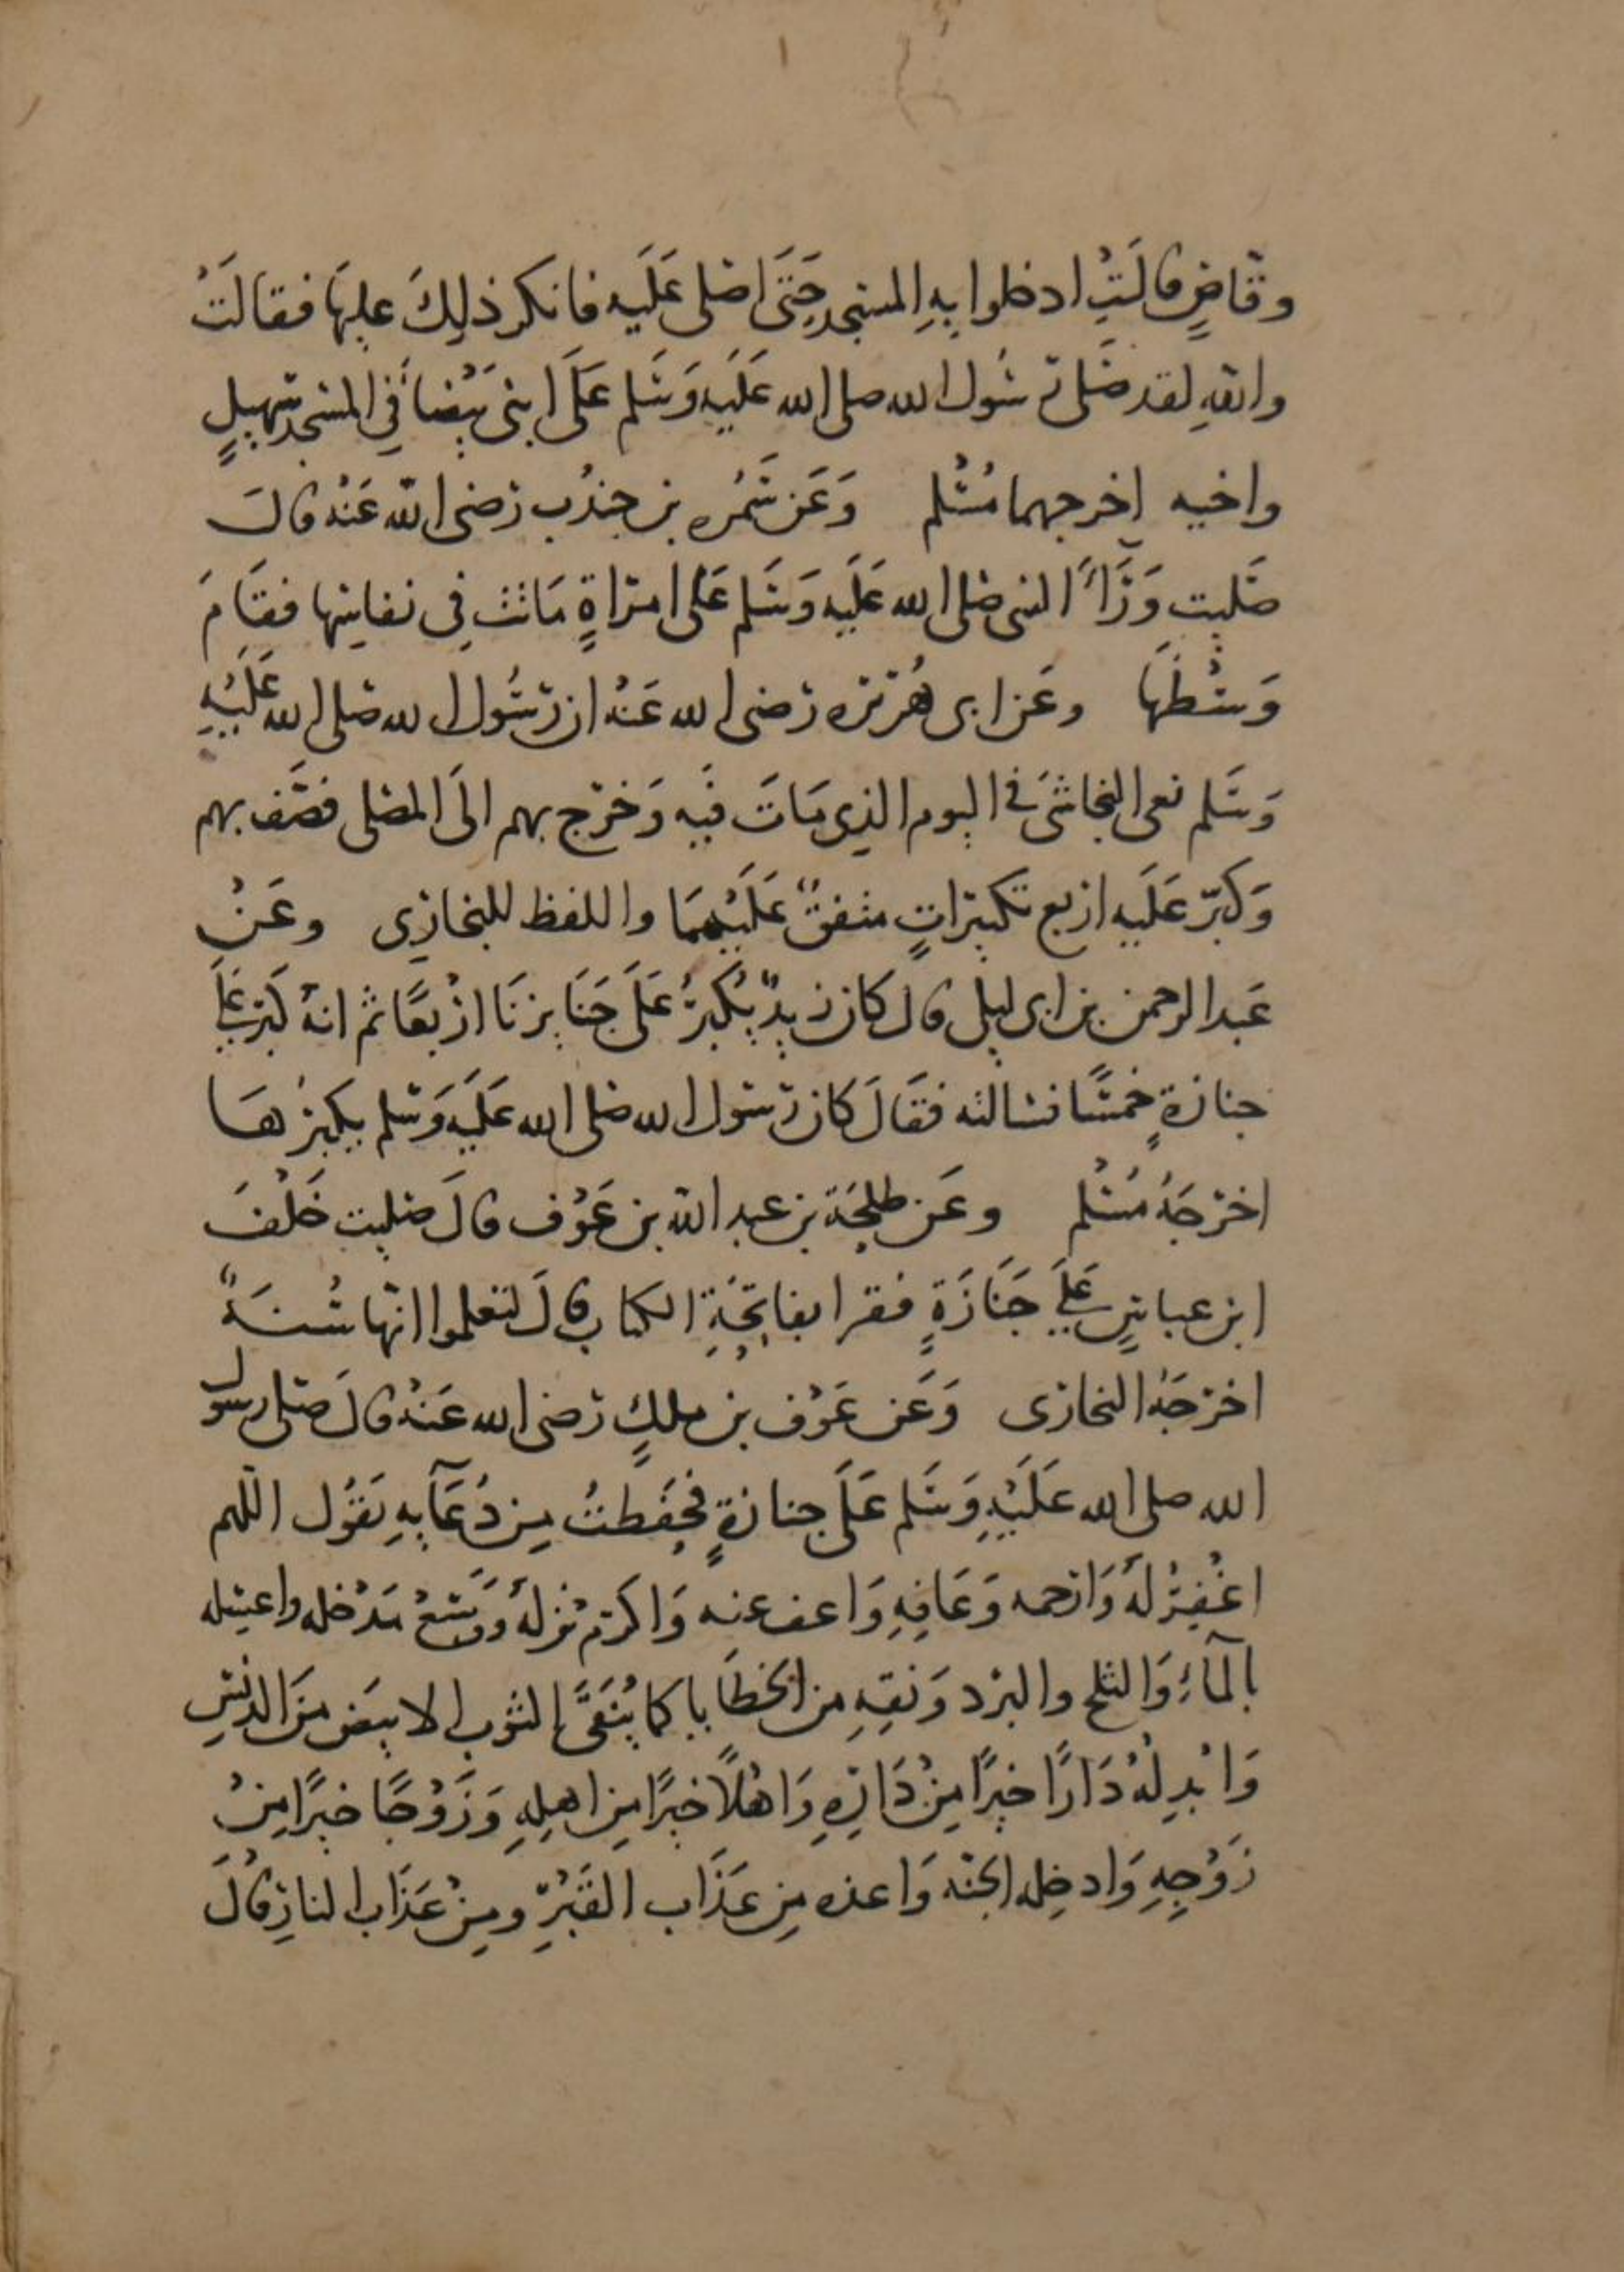 وقاصٍ قالَتْ ادخلوا بهِ المسجد حَتَّى اصلى عَلَيه فانكر ذلِكَ عليهَا فقالَتْ
واللهِ لقد صَلى رسُول الله صلى الله عَلَيهِ وَسَلم عَلَى ابنى بَيْضاَء فِي المسْجد سُهيلٍ
واخيه اخرجهما مُسْلم وَعَن سَمُره بن جندُب رضى الله عَنْه قال
صَليت وَرَآءَ النبى صلى الله عَلَيه وَسَلم عَلى امرَاةٍ مَاتت فِي نفاسِها فقَامَ
وَسْطَهَا وعَن ابى هُرَيره رَضى الله عَنْهُ ان رَسُول الله صَلى الله عَلَيْهِ
وَسَلم نعى النجاشىَ فى اليوم الذِى مَاتَ فيْه وَخرَج بهم الَى المصَلى فصَف بهم
وَكبّر عَلَيه اربع تكبيرَاتٍ متفقٌ عَلَيْهِمَا واللفظ للبخارِى وعَنْ
عَبد الرحمن بن ابى ليلى قال كان زيدٌ يُكبرُ عَلَى جَنَايزنَا ارْبعًا ثم انهُ كَبّر عَلَى
جنازةٍ خمسًا فسالته فقَالَ كان رَسُول الله صلى الله عَلَيهِ وَسَلم يكبرُهَا
اخرَجَهُ مُسْلم وعَن طلحَة بن عبد الله بن عَوْف قالَ صَليت خَلْفَ
ابن عباسٍ عَلَى جَنَازَةٍ فقرا بفاتِحَةِ الكتاب قالَ لتعلموا انّها سُنَةٌ
اخرَجَهُ البخارَى وَعَن عَوْف بن ملكٍ رَضى الله عَنهُ قالَ صَلى رسول
الله صلى الله عَلَيْهِ وَسَلم عَلَى جنازةٍ فحفَظتُ مِن دُعَآيهِ يَقُول اللّهم
اغْفِرْ لَهُ وَارحمه وَعَافِهِ وَاعف عنه وَاكرَم نُزلهُ وَوَسّعْ مَدْخله واغسِله
بالمآءِ وَالثلج والبَرَد وَنقِهِ من الخطَايا كما يُنَقَّى الثوب الابيَض مِنَ الدنسِ
وَابْدِلْهُ دَارًا خيرًا مِنْ دَارِهِ وَاهْلًا خيرًا مِن اهلِهِ وَزَوْجًا خيرًا مِنْ
زَوْجِهِ وَادخِله الجنّه وَاعذه مِن عَذَاب القَبْرِ ومِنْ عَذَاب النارِ قَالَ